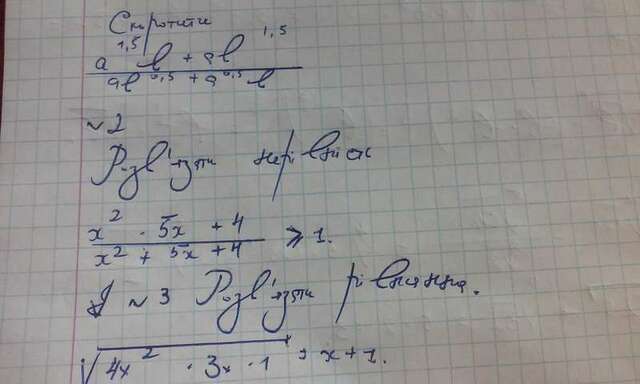 Скоротити
a^1,5 b + ab^1,5
ab^0,5 + a^0,5 b
№2
Розв'язати нерівність
x² - 5x + 4
x² + 5x + 4 ≥ 1.
№3 Розв'язати рівняння.
√4x² - 3x - 1 = x + 1.